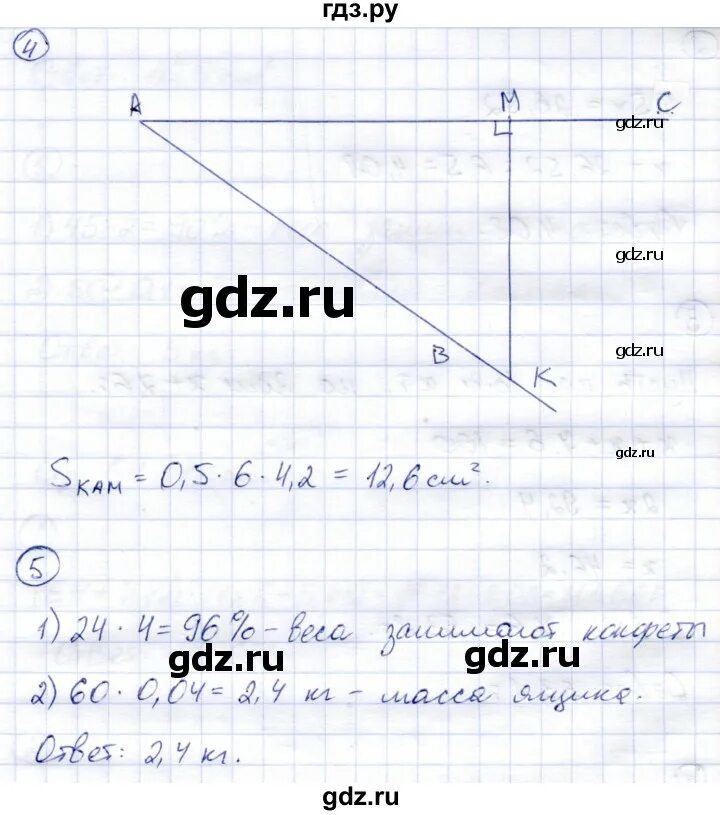 гдз.ру
4
A M C
gdz.ru
gdz.ru
gdz.ru
B K
gdz.ru
gdz.ru
S KAM = 0,5 · 6 · 4,2 = 12,6 см².
5
1) 24 · 4 = 96% - веса занимают конфеты
gdz.ru gdz.ru
2) 60 · 0,04 = 2,4 кг - масса ящика.
Ответ: 2,4 кг.
gdz.ru